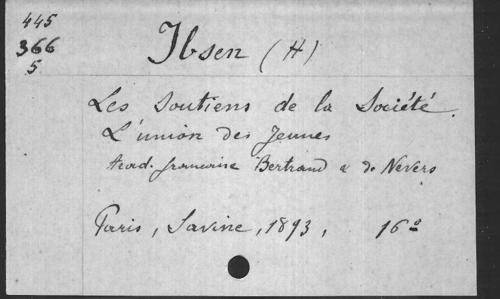 445
366
5
Ibsen (H)
Les Soutiens de la Société.
L'union des Jeunes
trad. française Bertrand & de Nevers
Paris, Savine, 1893, 16º